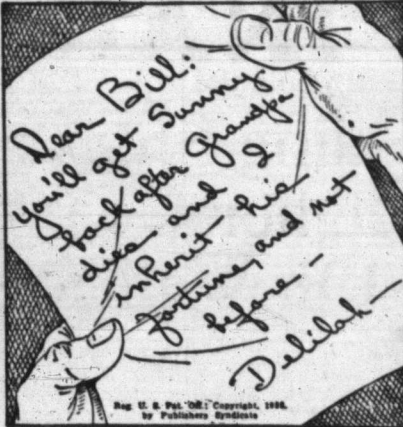 Dear Bill:
you'll get Sunny
back after Grandpa
dies and I
inherit his
fortune, and not
before -
Delilah -
Reg. U. S. Pat. Off.: Copyright, 1938,
by Publishers Syndicate